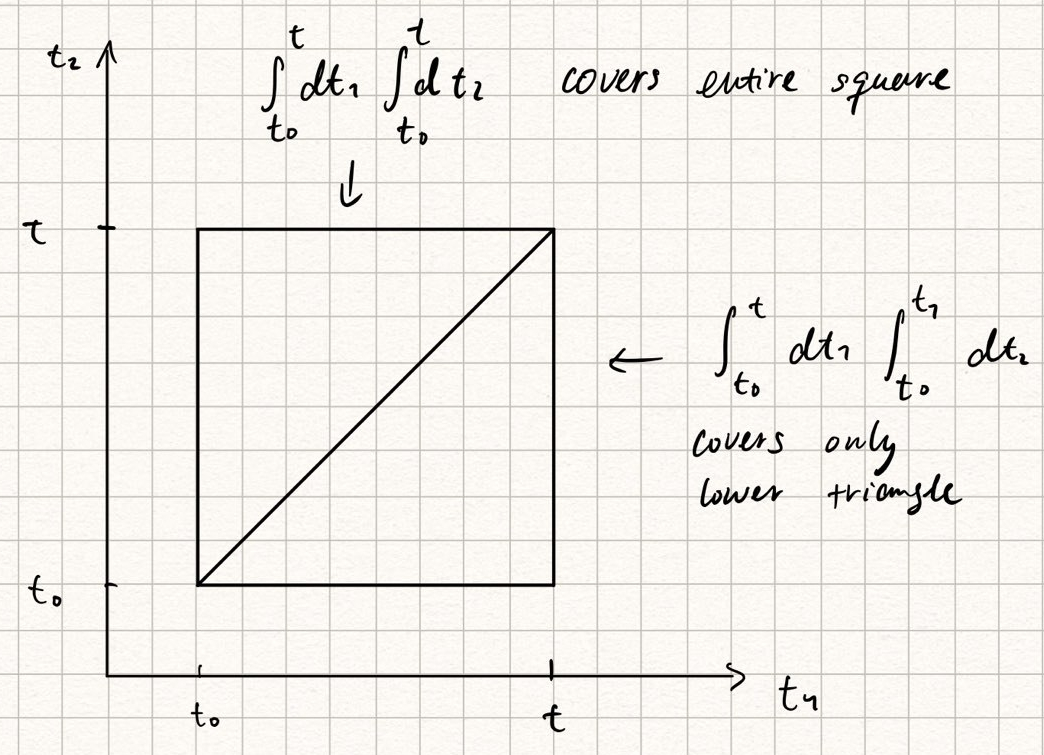 t₂
∫_{t₀}^{t} dt₁ ∫_{t₀}^{t} dt₂ covers entire square
↓
t
← ∫_{t₀}^{t} dt₁ ∫_{t₀}^{t₁} dt₂
covers only
lower triangle
t₀
t₀ t t₁